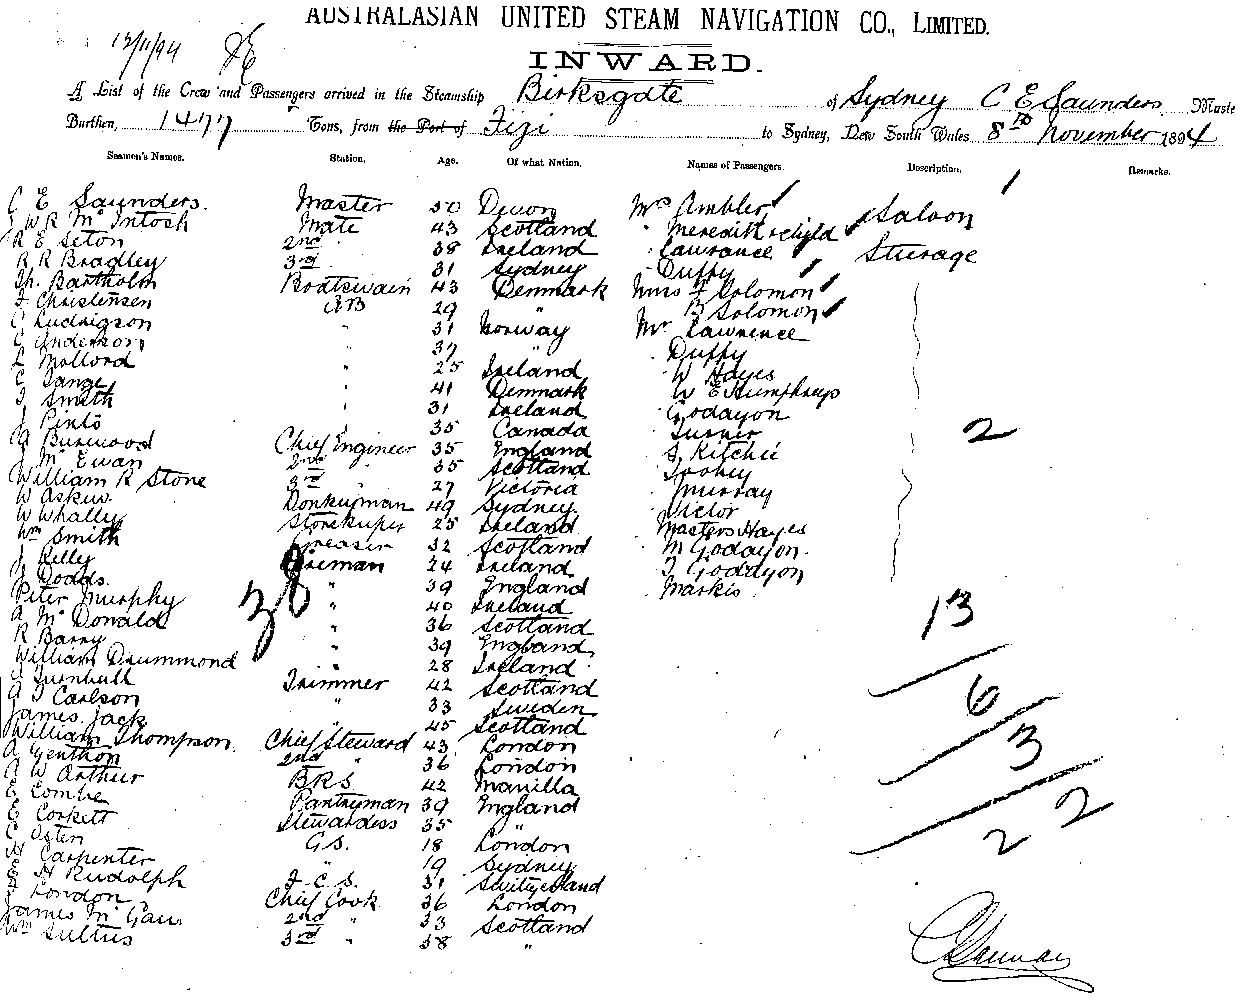 AUSTRALASIAN UNITED STEAM NAVIGATION CO., LIMITED.
12/11/94
INWARD.
A List of the Crew and Passengers arrived in the Steamship Birksgate of Sydney C E Saunders Maste
Burthen, 1477 Tons, from the Port of Fiji to Sydney, New South Wales 8th November 1894
Seamen's Names. Station. Age. Of what Nation. Names of Passengers. Description. Remarks.
C E Saunders. Master 50 Devon Mrs Ambler Saloon
J W R McIntosh Mate 43 Scotland " Meredith & child
R E Seton 2nd 38 Ireland Lawrance Sturage
R R Bradley 3rd 31 Sydney Duffy
Th. Bartholm Boatswain 43 Denmark Miss F Solomon
J Christensen AB 29 " B Solomon
C Ludrigson " 31 Norway Mr Lawrence
C Anderson " 37 " Duffy
L Mollord " 25 Ireland W Hayes
C Lange " 41 Denmark W E Humphreys
J Smith " 31 Ireland Godayon
J Pinto 35 Canada Turner 2
A Burwood Chief Engineer 35 England J. Kitchie
J McEwan 2nd 35 Scotland Toohey
William R Stone 3rd 27 Victoria Murray
W Askew Donkeyman 49 Sydney Victor
W Whally Storekuper 25 Ireland Masters Hayes
Wm Smith Greaser 32 Scotland M Godayon
J Kelly Fireman 24 Ireland J Godayon
J Dodds. " 39 England Markis
38
Peter Murphy " 40 Ireland
A McDonald " 36 Scotland 13
R Barry " 39 England
William Drummond " 28 Ireland
A Turnbull Trimmer 42 Scotland 6
A J Carlson " 33 Sweden
James Jack " 45 Scotland 3
William Thompson. Chief Steward 43 London
A Genthon 2nd " 36 London
A W Arthur BRS 42 Manilla
E Combe Pantryman 39 England 22
E Corkett Stewardess 35 "
C Osten G.S. 18 London 2
H Carpenter " 19 Sydney
E H Rudolph F.C.S. 31 Switzerland
J London Chief Cook 36 London
James McGaw 2nd " 33 Scotland
Wm Sultus 3rd " 38 "